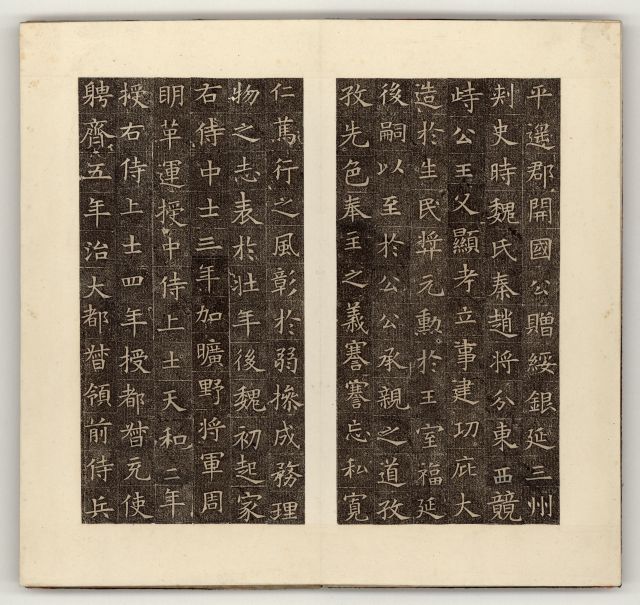 平遥郡開國公贈綏銀延三州
刾史時魏氏秦趙將分東西競
峙公王父顯考立事建功庇大
造於生民奬元勳於王室福延
後嗣以至於公公承親之道孜
孜先色奉主之義謇謇忘私寬
仁篤行之風彰於弱操成務理
物之志表於壯年後魏初起家
右侍中士三年加曠野將軍周
明革運授中侍上士天和二年
授右侍上士四年授都督充使
聘齊五年治大都督領前侍兵